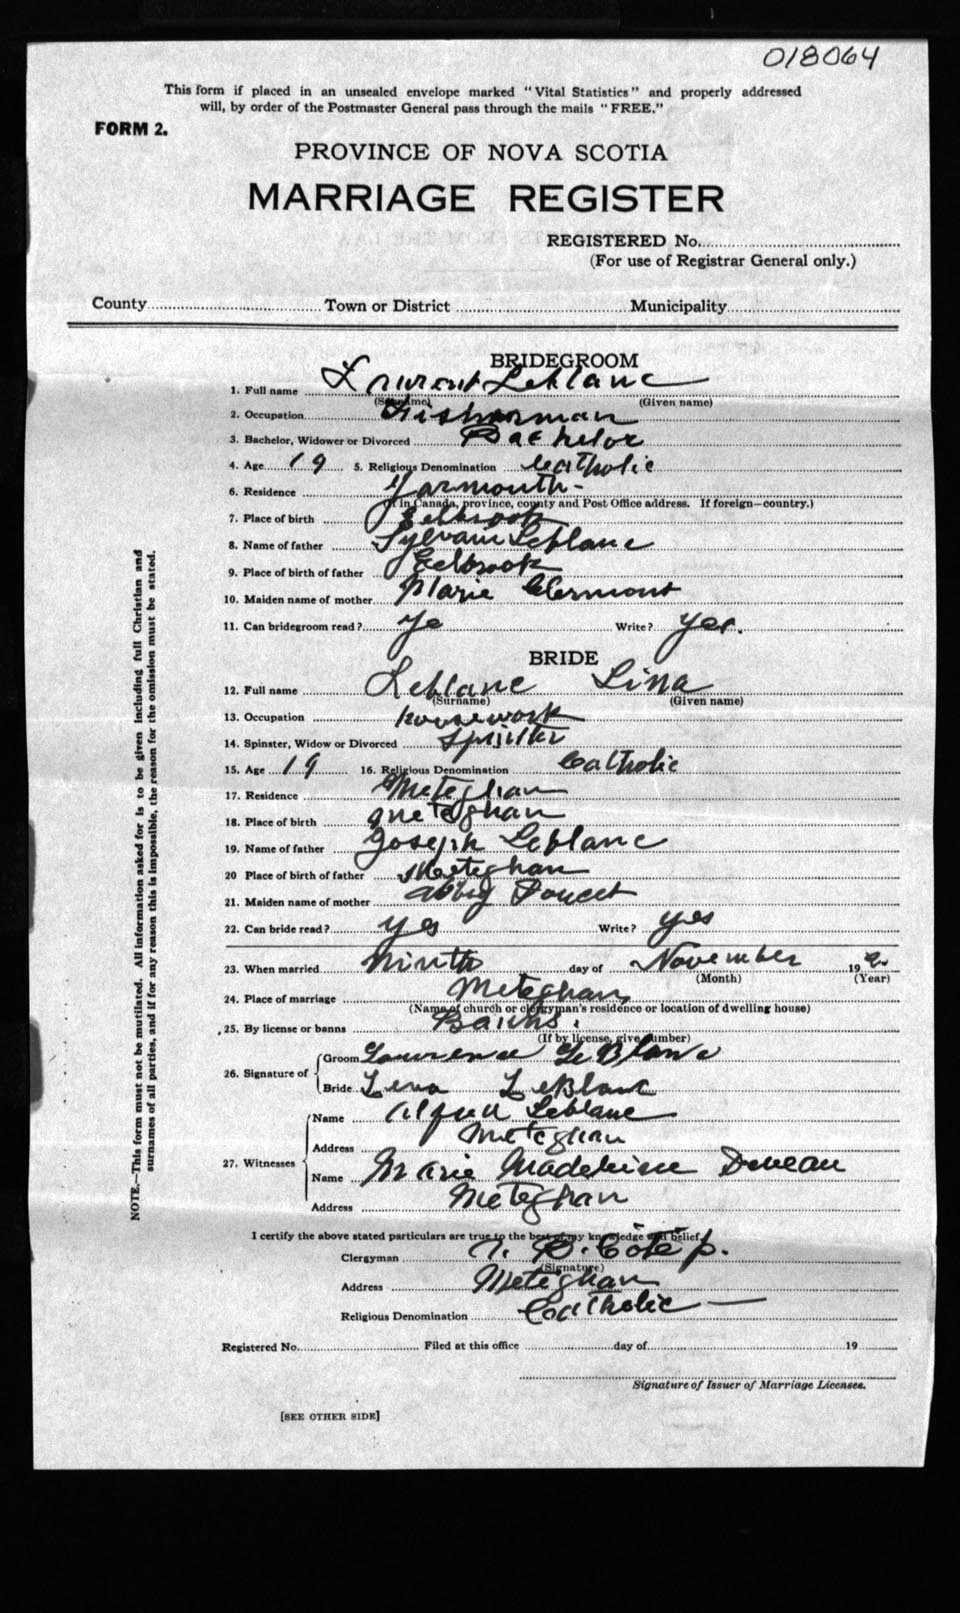 018064
This form if placed in an unsealed envelope marked "Vital Statistics" and properly addressed
will, by order of the Postmaster General pass through the mails "FREE."
FORM 2.
PROVINCE OF NOVA SCOTIA
MARRIAGE REGISTER
REGISTERED No.
(For use of Registrar General only.)
County Town or District Municipality
BRIDEGROOM
1. Full name Laurent Leblanc
(Surname) (Given name)
2. Occupation Fisherman
3. Bachelor, Widower or Divorced Bachelor
4. Age 19 5. Religious Denomination Catholic
6. Residence Yarmouth-
(If in Canada, province, county and Post Office address. If foreign—country.)
7. Place of birth Eelbrook
8. Name of father Sylvain Leblanc
9. Place of birth of father Eelbrook
10. Maiden name of mother Marie Clermont
11. Can bridegroom read? Ye Write? Yes.
BRIDE
12. Full name Leblanc Lina
(Surname) (Given name)
13. Occupation housework
14. Spinster, Widow or Divorced Spinster
15. Age 19 16. Religious Denomination Catholic
17. Residence Meteghan
18. Place of birth Meteghan
19. Name of father Joseph Leblanc
20 Place of birth of father Meteghan
21. Maiden name of mother Abby Doucet
22. Can bride read? yes Write? yes
23. When married Ninth day of November 19
(Month) (Year)
24. Place of marriage Meteghan
(Name of church or clergyman's residence or location of dwelling house)
25. By license or banns Banns.
(If by license, give number)
26. Signature of Groom Lawrence LeBlanc
Bride Lena LeBlanc
27. Witnesses Name Alfred Leblanc
Address Meteghan
Name Marie Madeleine Deveau
Address Meteghan
I certify the above stated particulars are true to the best of my knowledge and belief.
Clergyman Côté p.
(Signature)
Address Meteghan
Religious Denomination Catholic —
Registered No. Filed at this office day of 19
Signature of Issuer of Marriage Licenses.
[SEE OTHER SIDE]
NOTE.—This form must not be mutilated. All information asked for is to be given including full Christian and
surnames of all parties, and if for any reason this is impossible, the reason for the omission must be stated.